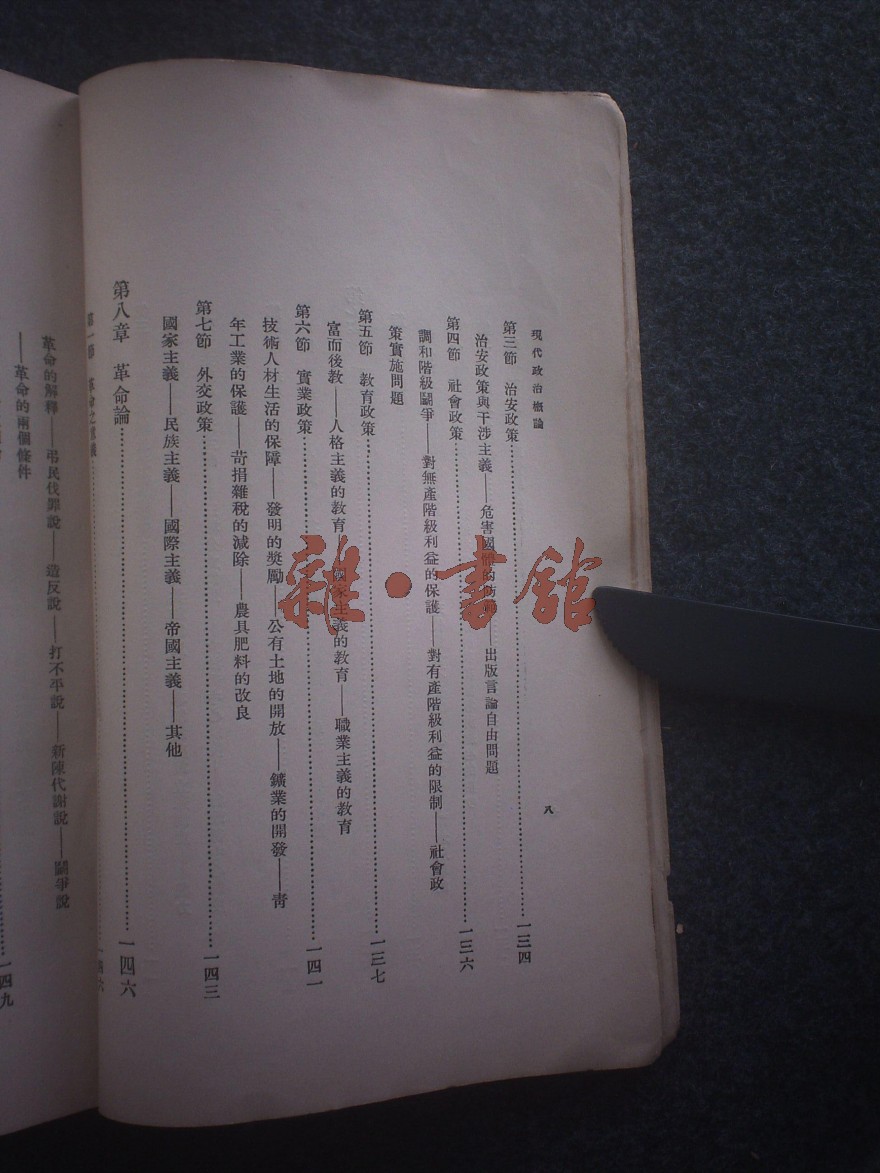 現代政治概論
八
第三節 治安政策……一三四
治安政策與干涉主義——危害國體的防——出版言論自由問題
第四節 社會政策……一三六
調和階級鬭爭——對無產階級利益的保護——對有產階級利益的限制——社會政
策實施問題
第五節 教育政策……一三七
富而後教——人格主義的教育——國家主義的教育——職業主義的教育
第六節 實業政策……一四一
技術人材生活的保障——發明的獎勵——公有土地的開放——鑛業的開發——靑
年工業的保護——苛捐雜稅的減除——農具肥料的改良
第七節 外交政策……一四三
國家主義——民族主義——國際主義——帝國主義——其他
第八章 革命論……一四六
第一節 革命之意義……一四六
革命的解釋——弔民伐罪說——造反說——打不平說——新陳代謝說——鬭爭說
——革命的兩個條件
一四九
雜·書館